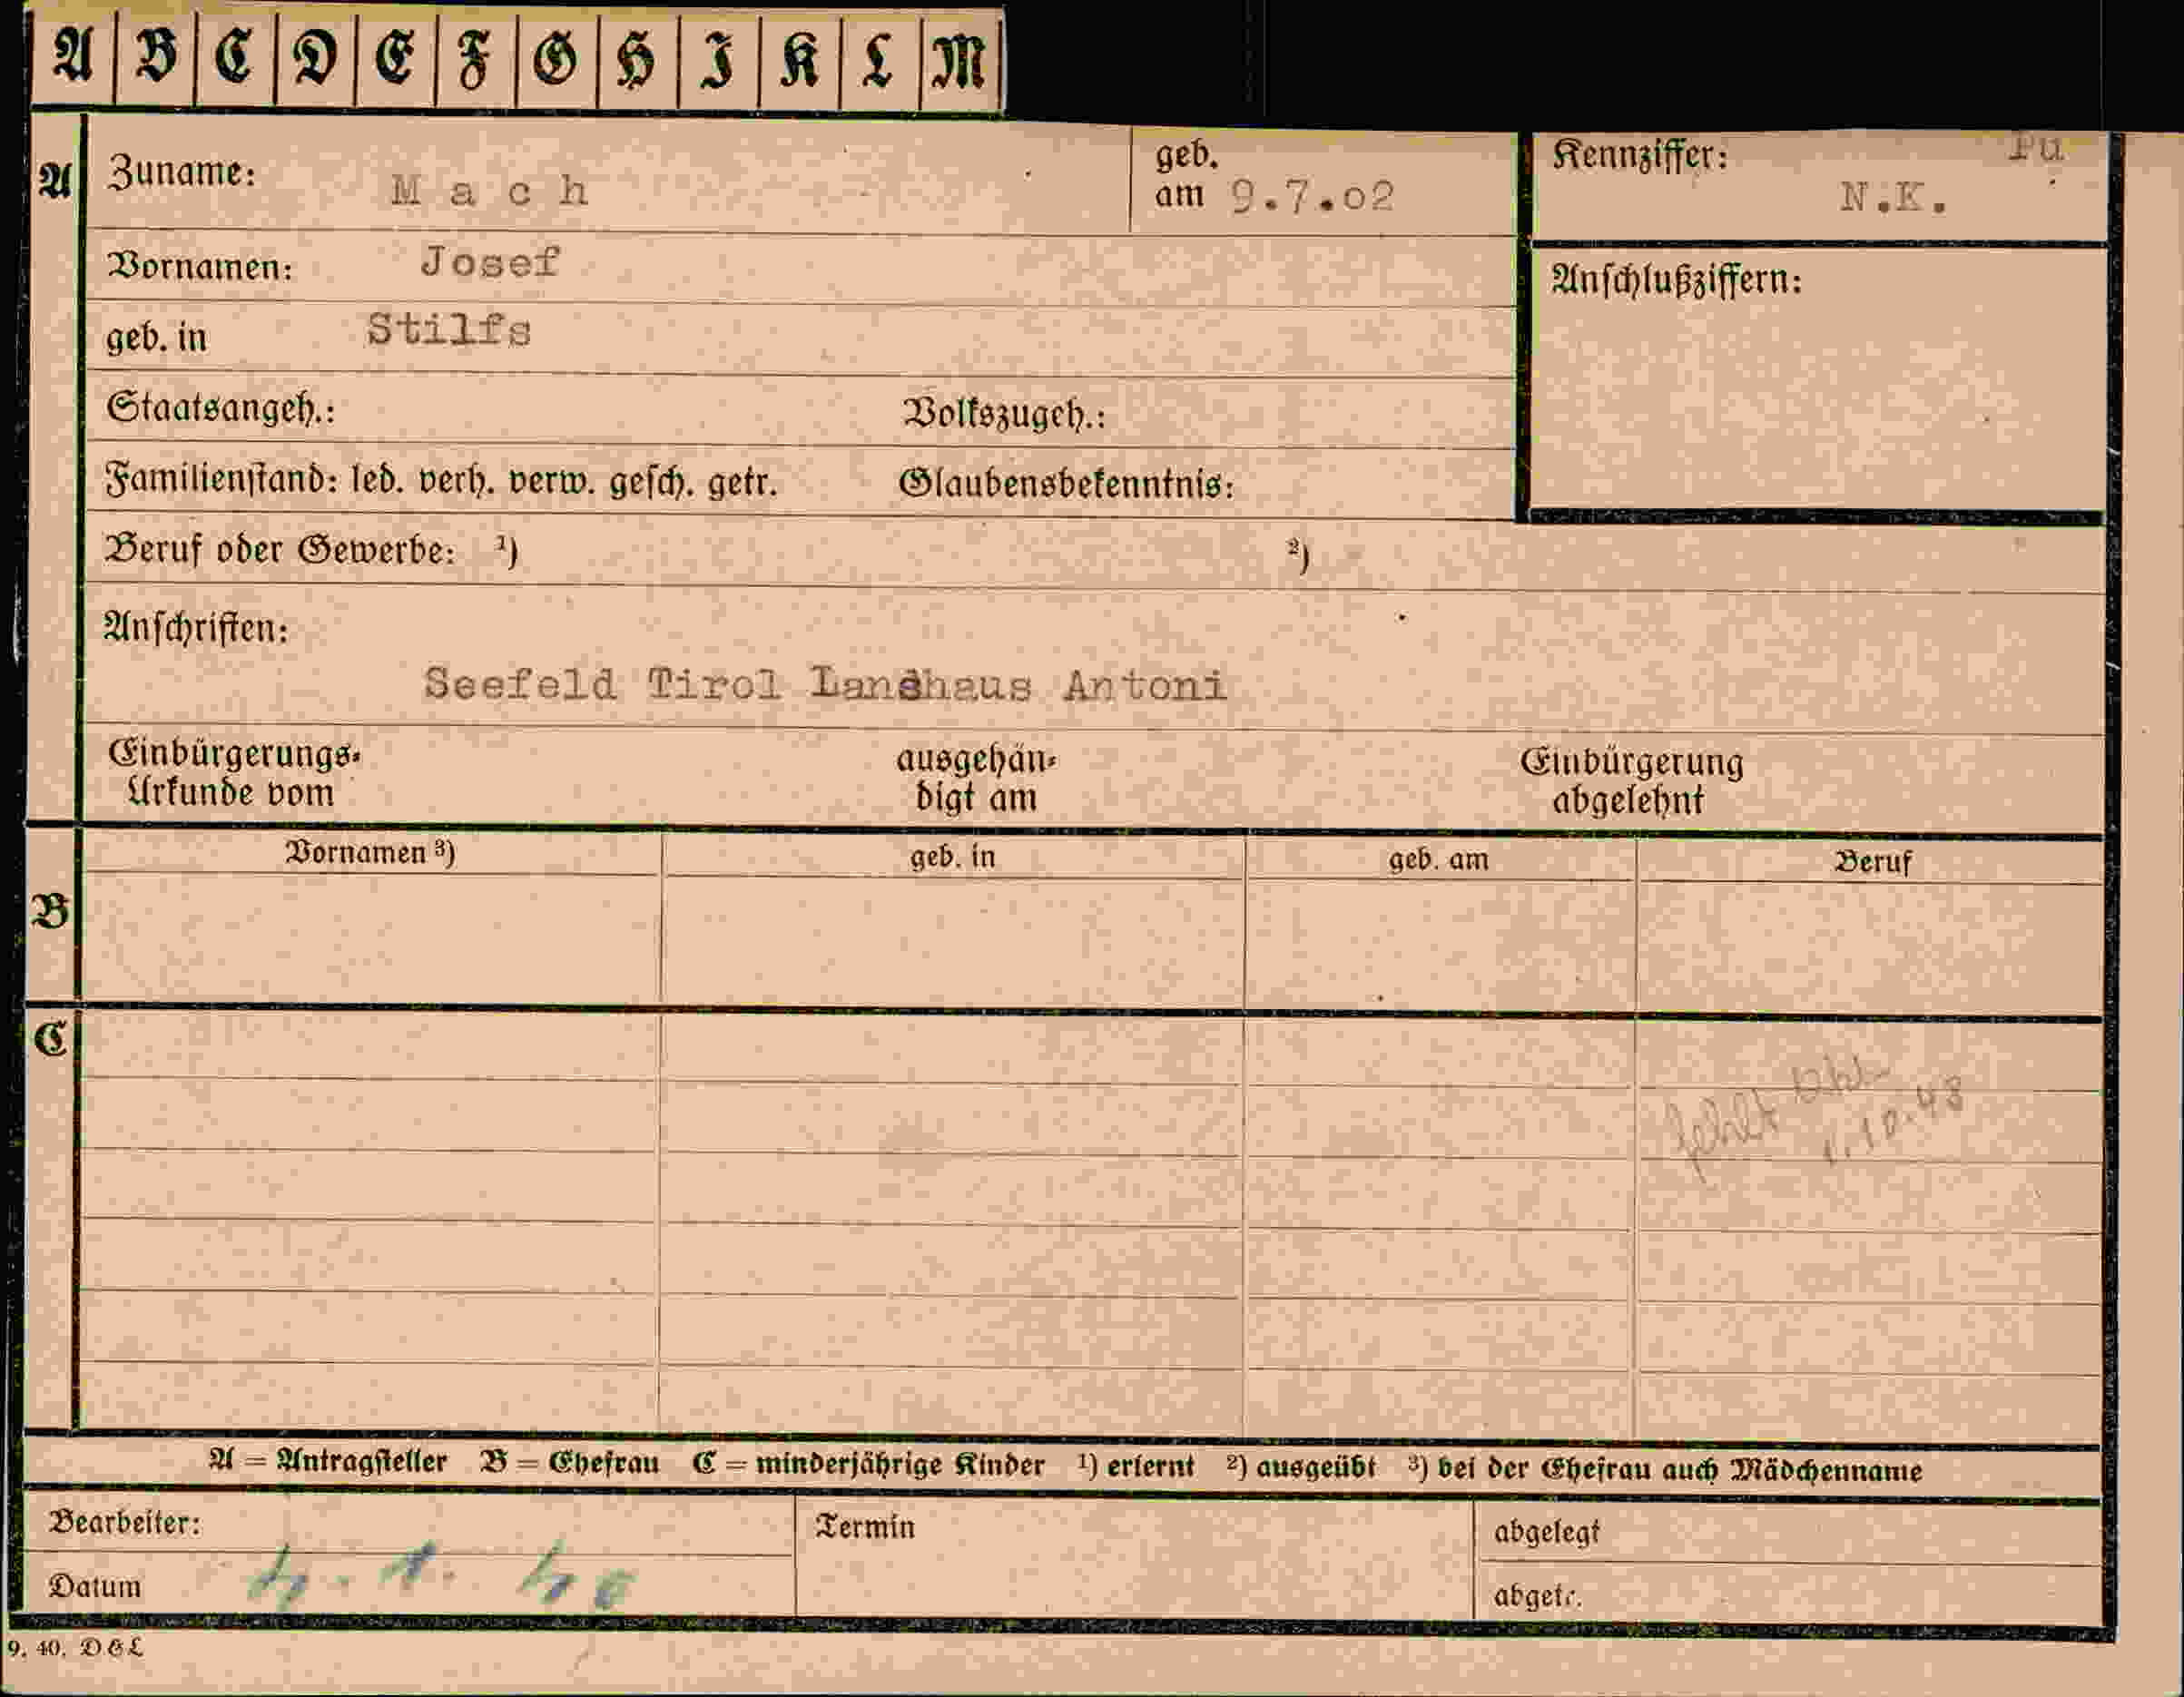 A B C D E F G H I K L M
A Zuname: Mach geb. am 9.7.02 Kennziffer: Pu N.K.
Vornamen: Josef Anschlußziffern:
geb. in Stilfs
Staatsangeh.: Volkszugeh.:
Familienstand: led. verh. verw. gesch. getr. Glaubensbekenntnis:
Beruf oder Gewerbe: ¹) ²)
Anschriften:
Seefeld Tirol Landhaus Antoni
Einbürgerungs- ausgehän- Einbürgerung
Urkunde vom digt am abgelehnt
Vornamen ³) geb. in geb. am Beruf
B
C
fehlt
1.10.43
A = Antragsteller B = Ehefrau C = minderjährige Kinder ¹) erlernt ²) ausgeübt ³) bei der Ehefrau auch Mädchenname
Bearbeiter: Termin abgelegt
Datum 4. 1. abgetr.
9. 40. D G L